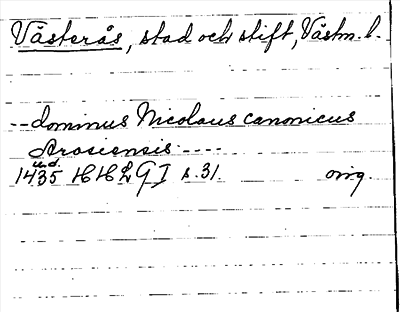 Västerås, stad och stift, Västm. l.
-- dominus Nicolaus canonicus
Arosiensis ----
u.d.
1435 HH2 G I s. 31. orig.